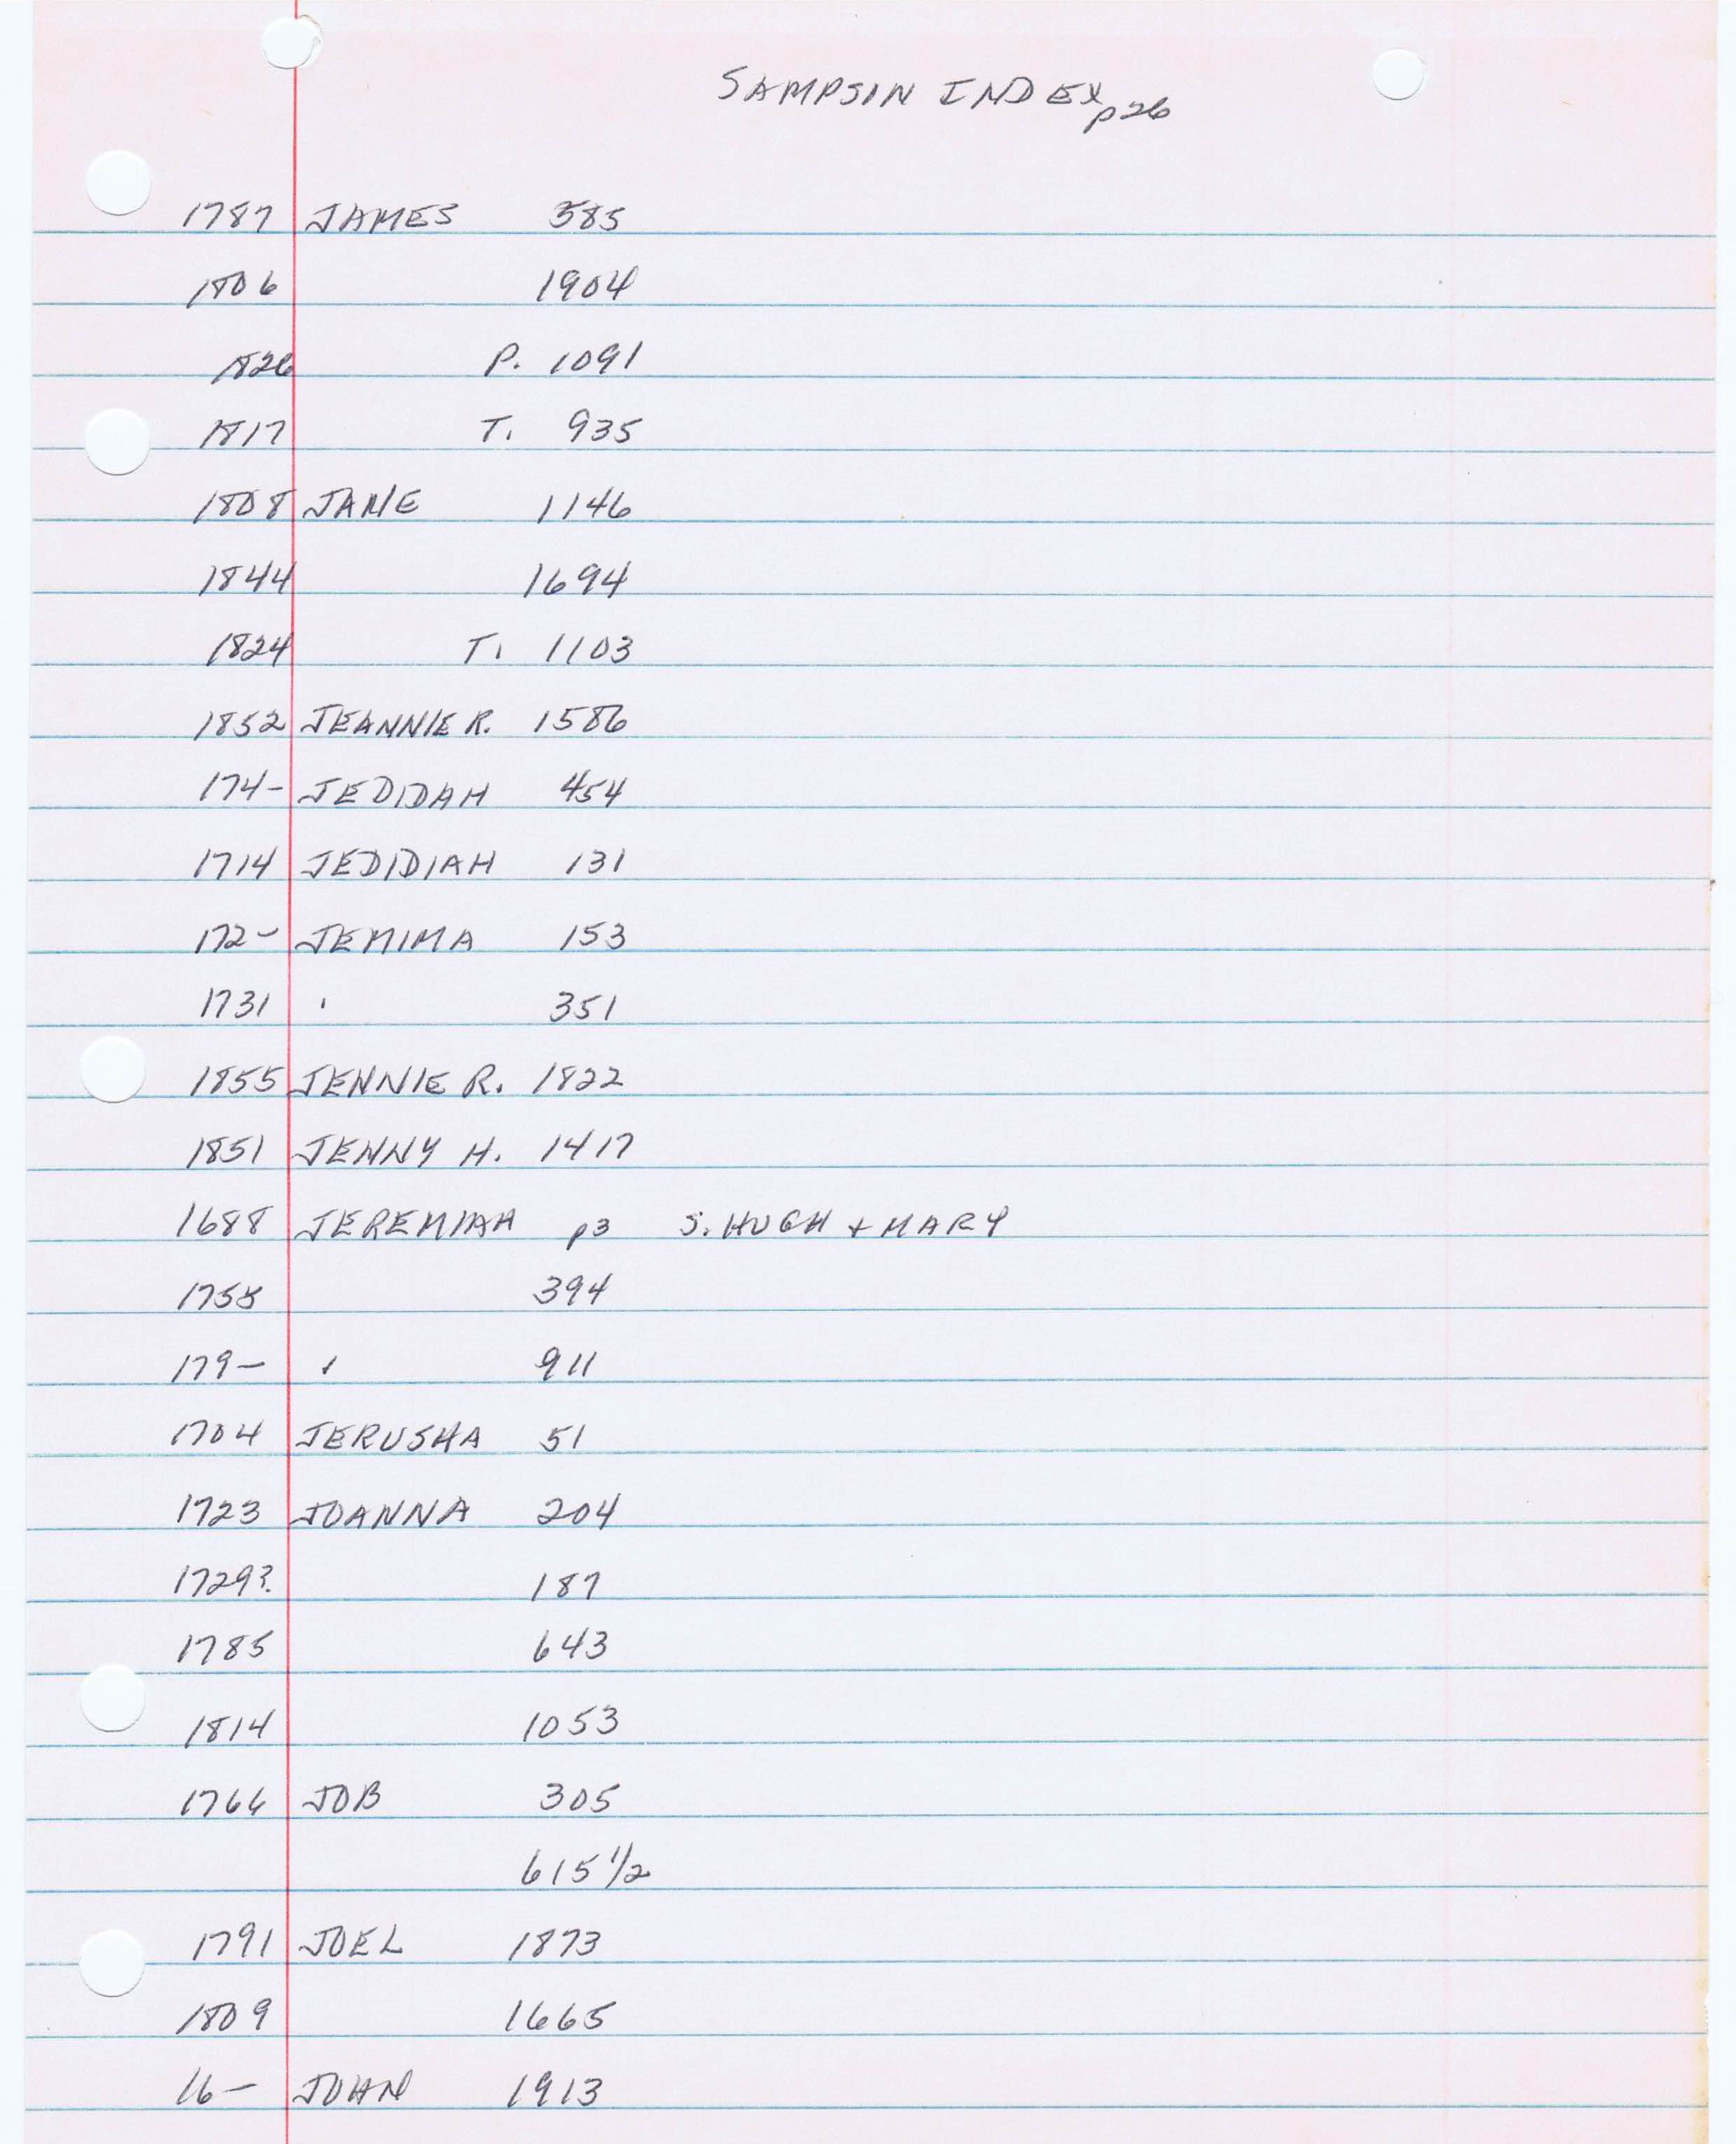 SAMPSON INDEX p26
1787 JAMES 385
1806 1904
1826 P. 1091
1817 T. 935
1808 JANE 1146
1844 1694
1824 T. 1103
1852 JEANNIE R. 1586
174- JEDIDAH 454
1714 JEDIDIAH 131
172- JEMIMA 153
1731 ' 351
1855 JENNIE R. 1822
1851 JENNY H. 1417
1688 JEREMIAH p3 S. HUGH + MARY
394
179- ' 911
1704 JERUSHA 51
1723 JOANNA 204
1729? 187
1785 643
1814 1053
1766 JOB 305
615 1/2
1791 JOEL 1873
1809 1665
16- JOHN 1913